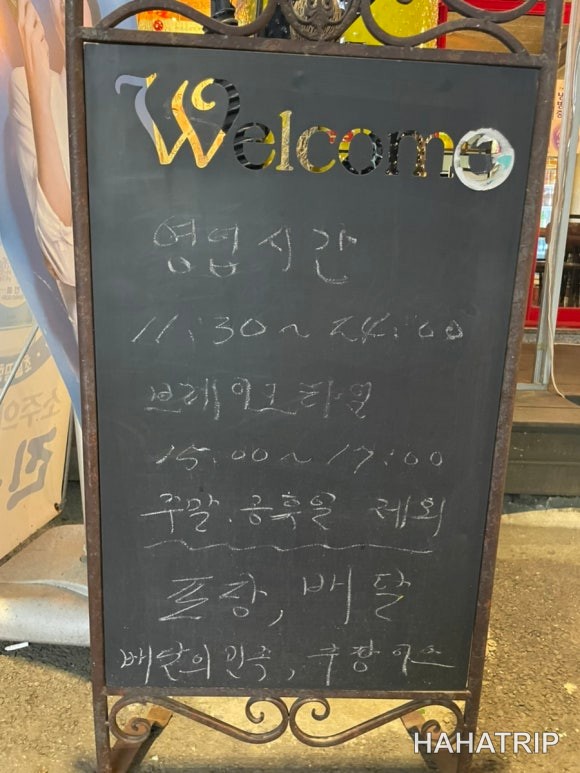 Welcome
영업시간
11:30~24:00
브레이크타임
15:00~17:00
주말.공휴일 제외
포장, 배달
배달의민족, 쿠팡이츠
소주의
진
HAHATRIP